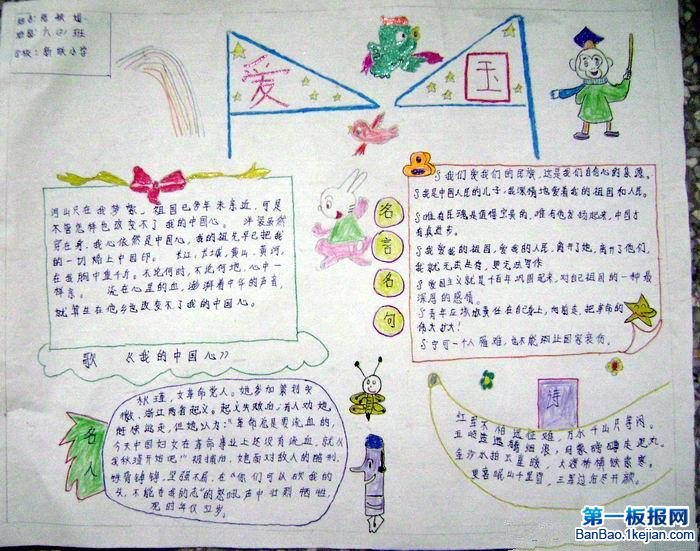 班级：六(1)班
学校：新联小学
爱
国
河山只在我梦萦，祖国已多年未亲近，可是
不管怎样也改变不了我的中国心。 洋装虽然
穿在身，我心依然是中国心，我的祖先早已把我
的一切烙上中国印。 长江，长城，黄山，黄河，
在我胸中重千斤。不论何时，不论何地，心中一
样亲。 流在心里的血，澎湃着中华的声音，
就算生在他乡也改变不了我的中国心。
歌 《我的中国心》
名
言
名
句
我们爱我们的民族，这是我们自信心的泉源。
我是中国人民的儿子，我深情地爱着我的祖国和人民。
唯有民魂是值得宝贵的，唯有他发扬起来，中国才
有真进步。
我爱我的祖国，爱我的人民，离开了她，离开了他们，
我就无法生存，更无法写作
爱国主义就是千百年巩固起来，对自己祖国的一种最
深厚的感情。
的
伟大扩大！
宁可一人罹难，也不能
名
人
秋瑾，女革命党人。她参加策划安
徽、浙江两省起义。起义失败后，有人劝她
赶快逃走，但她认为："革命总是要流血的，
今天中国妇女在革命事业上还没有流血，就从
我秋瑾开始吧"被捕后，她面对敌人的酷刑，
铁骨铮铮，坚强不屈，在"你们可以砍我的
头，不能夺我的志"的怒吼声中壮烈牺牲，
死的年仅32岁。
诗
红军不怕远征难，万水千山只等闲。
五岭逶迤腾细浪，乌蒙磅礴走泥丸。
金沙水拍云崖暖，大渡桥横铁索寒。
更喜岷山千里雪，三军过后尽开颜。
第一板报网
BanBao.1kejian.com